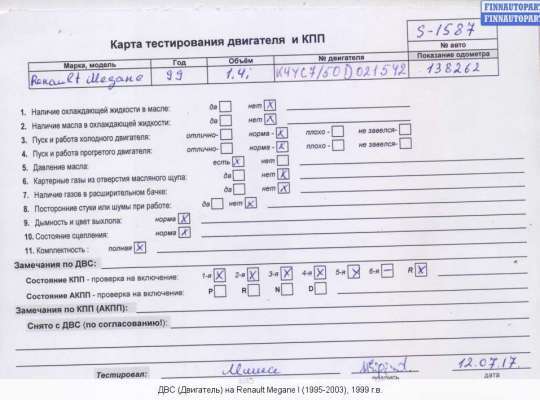 FINNAUTOPART
FINNAUTOPART
S-1587
№ авто
Карта тестирования двигателя и КПП
Марка, модель Год Объём № двигателя Показание одометра
Renault Megane 99 1.4i K4YC7/50D021542 138262
1. Наличие охлаждающей жидкости в масле: да нет X
2. Наличие масла в охлаждающей жидкости: да нет X
3. Пуск и работа холодного двигателя: отлично- норма - X плохо - не завелся-
4. Пуск и работа прогретого двигателя: отлично- норма - X плохо - не завелся-
5. Давление масла: есть X нет
6. Картерные газы из отверстия масляного щупа: да нет X
7. Наличие газов в расширительном бачке: да нет X
8. Посторонние стуки или шумы при работе: да нет X
9. Дымность и цвет выхлопа: норма X
10. Состояние сцепления: норма X
11. Комплектность : полная X
Замечания по ДВС:
Состояние КПП - проверка на включение: 1-я X 2-я X 3-я X 4-я X 5-я X 6-я – R X
Состояние АКПП - проверка на включение: P R N D
Замечания по КПП (АКПП):
Снято с ДВС (по согласованию!):
Тестировал: Миша 12.07.17.
подпись дата
ДВС (Двигатель) на Renault Megane I (1995-2003), 1999 г.в.